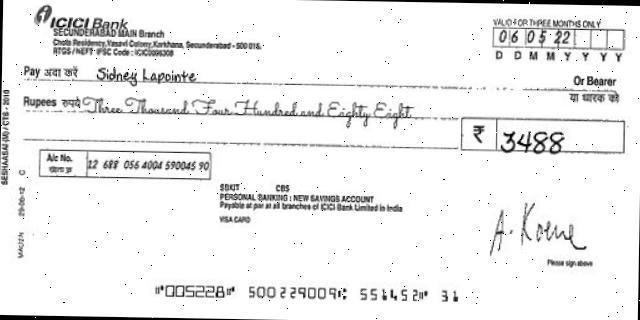 ICICI Bank
SECUNDERABAD MAIN Branch
Chota Residency, Vasavi Colony, Karkhana, Secunderabad - 500 015.
RTGS / NEFT IFSC Code : ICIC0006308
VALID FOR THREE MONTHS ONLY
0 6 0 5 2 2
D D M M Y Y Y Y
Pay अदा करें Sidney Lapointe
Or Bearer
या धारक को
Rupees रुपये Three Thousand Four Hundred and Eighty Eight
₹ 3488
A/c No. 12 688 056 4004 590045 90
खाता क्र
SBKIT CBS
PERSONAL BANKING : NEW SAVINGS ACCOUNT
Payable at par at all branches of ICICI Bank Limited in India
VISA CARD
A. Koene
Please sign above
SESHAASAI (M) / CTS - 2010
29-06-12 C
⑈005228⑈ 500229009⑆ 551452⑈ 31